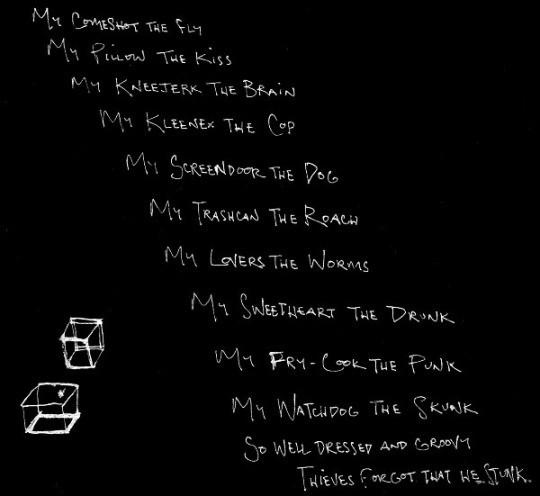 My Comeshot the Fly
My Pillow the Kiss
My Kneejerk the Brain
My Kleenex the Cop
My Screendoor the Dog
My Trashcan the Roach
My Lovers the Worms
My Sweetheart the Drunk
My Fry-Cook the Punk
My Watchdog the Skunk
So well dressed and groovy
Thieves forgot that he stunk.